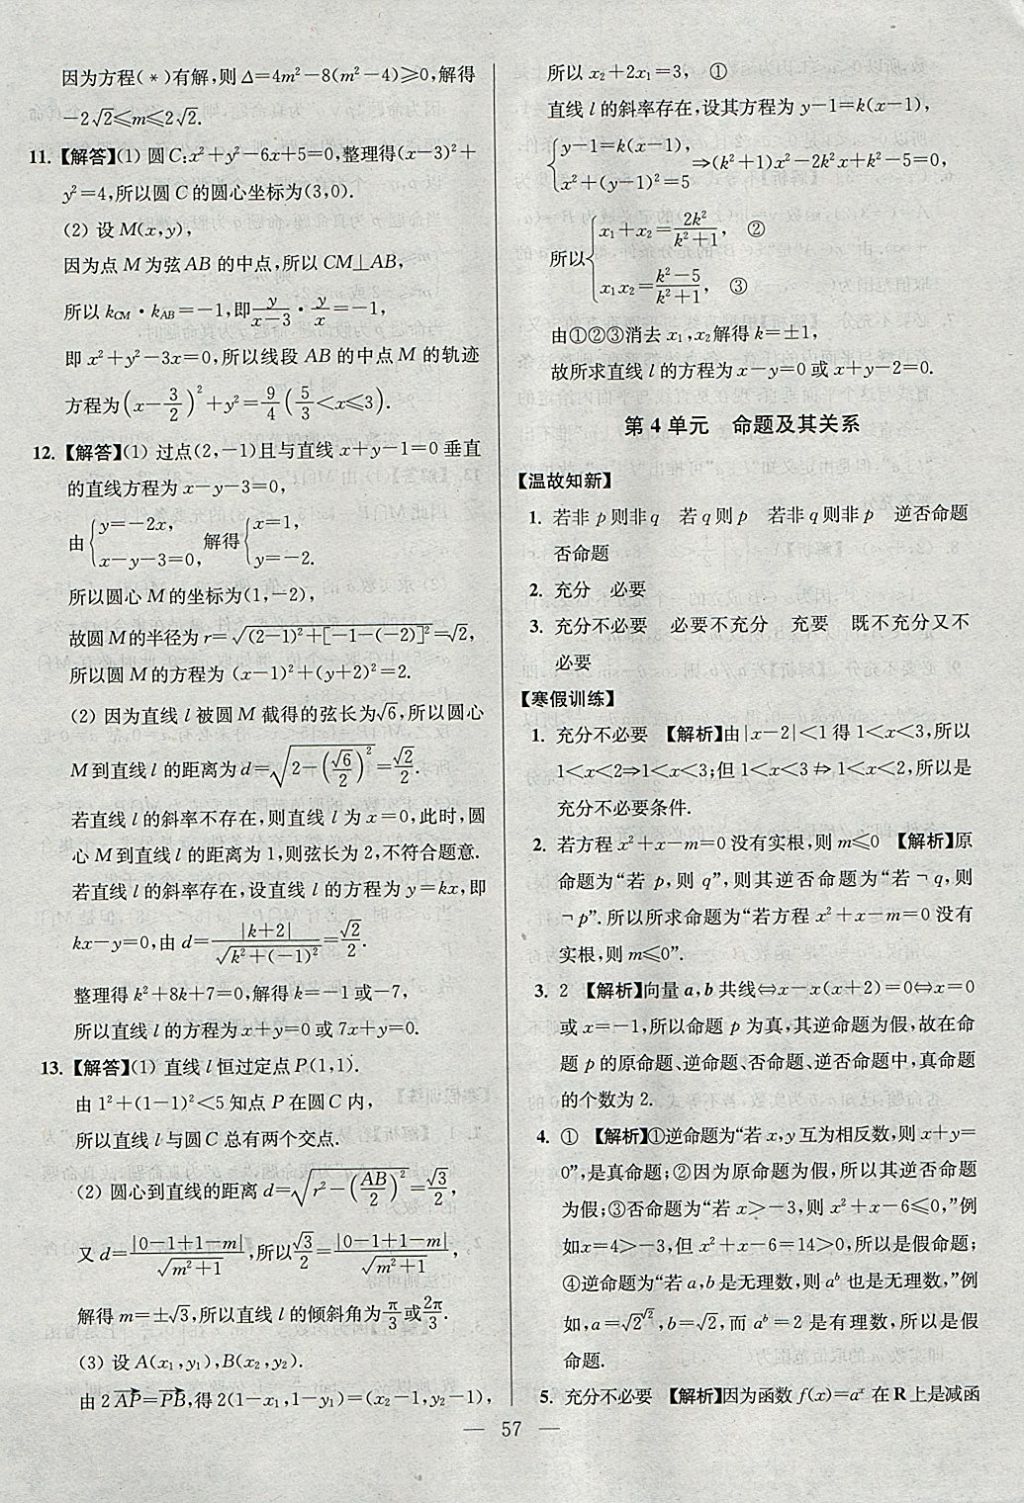 因为方程(*)有解,则Δ=4m²-8(m²-4)≥0,解得
-2√2≤m≤2√2.
11.【解答】(1) 圆C:x²+y²-6x+5=0,整理得(x-3)²+
y²=4,所以圆C的圆心坐标为(3,0).
(2) 设M(x,y),
因为点M为弦AB的中点,所以CM⊥AB,
所以k_{CM}·k_{AB}=-1,即\frac{y}{x-3}·\frac{y}{x}=-1,
即x²+y²-3x=0,所以线段AB的中点M的轨迹
方程为(x-\frac{3}{2})²+y²=\frac{9}{4}(\frac{5}{3}<x≤3).
12.【解答】(1) 过点(2,-1)且与直线x+y-1=0垂直
的直线方程为x-y-3=0,
由{y=-2x, x-y-3=0 解得{x=1, y=-2.
所以圆心M的坐标为(1,-2),
故圆M的半径为r=√((2-1)²+[-1-(-2)]²)=√2,
所以圆M的方程为(x-1)²+(y+2)²=2.
(2) 因为直线l被圆M截得的弦长为√6,所以圆心
M到直线l的距离为d=√(2-(\frac{√6}{2})²)=\frac{√2}{2}.
若直线l的斜率不存在,则直线l为x=0,此时,圆
心M到直线l的距离为1,则弦长为2,不符合题意.
若直线l的斜率存在,设直线l的方程为y=kx,即
kx-y=0,由d=\frac{|k+2|}{√(k²+(-1)²)}=\frac{√2}{2}.
整理得k²+8k+7=0,解得k=-1或-7,
所以直线l的方程为x+y=0或7x+y=0.
13.【解答】(1) 直线l恒过定点P(1,1).
由1²+(1-1)²<5知点P在圆C内,
所以直线l与圆C总有两个交点.
(2) 圆心到直线的距离d=√(r²-(\frac{AB}{2})²)=\frac{√3}{2},
又d=\frac{|0-1+1-m|}{√(m²+1)},所以\frac{√3}{2}=\frac{|0-1+1-m|}{√(m²+1)},
解得m=±√3,所以直线l的倾斜角为\frac{π}{3}或\frac{2π}{3}.
(3) 设A(x₁,y₁),B(x₂,y₂).
由2\overrightarrow{AP}=\overrightarrow{PB},得2(1-x₁,1-y₁)=(x₂-1,y₂-1),
所以x₂+2x₁=3, ①
直线l的斜率存在,设其方程为y-1=k(x-1),
{y-1=k(x-1), x²+(y-1)²=5 ⇒(k²+1)x²-2k²x+k²-5=0,
所以{x₁+x₂=\frac{2k²}{k²+1}, ② x₁x₂=\frac{k²-5}{k²+1}, ③
由①②③消去x₁,x₂解得k=±1,
故所求直线l的方程为x-y=0或x+y-2=0.
第4单元 命题及其关系
【温故知新】
1. 若非p则非q 若q则p 若非q则非p 逆否命题
否命题
2. 充分 必要
3. 充分不必要 必要不充分 充要 既不充分又不
必要
【寒假训练】
1. 充分不必要 【解析】由|x-2|<1得1<x<3,所以
1<x<2⇒1<x<3;但1<x<3⇏1<x<2,所以是
充分不必要条件.
2. 若方程x²+x-m=0没有实根,则m≤0 【解析】原
命题为“若p,则q”,则其逆否命题为“若¬q,则
¬p”.所以所求命题为“若方程x²+x-m=0没有
实根,则m≤0”.
3. 2 【解析】向量a,b共线⇔x-x(x+2)=0⇔x=0
或x=-1,所以命题p为真,其逆命题为假,故在命
题p的原命题、逆命题、否命题、逆否命题中,真命题
的个数为2.
4. ① 【解析】①逆命题为“若x,y互为相反数,则x+y=
0”,是真命题;②因为原命题为假,所以其逆否命题
为假;③否命题为“若x>-3,则x²+x-6≤0,”例
如x=4>-3,但x²+x-6=14>0,所以是假命题;
④逆命题为“若a,b是无理数,则a^b也是无理数,”例
如,a=√2^{√2},b=√2,而a^b=2是有理数,所以是假
命题.
5. 充分不必要 【解析】因为函数f(x)=a^x在R上是减函
— 57 —